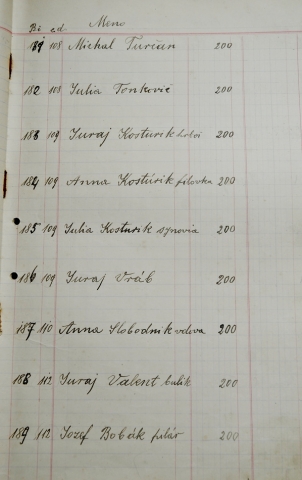 Bč čd Meno
181 108 Michal Turčan 200
182 108 Julia Tonkovič 200
183 109 Juraj Kosturik 200
184 109 Anna Kosturik filovka 200
185 109 Julia Kosturik synovia 200
186 109 Juraj Vráb 200
187 110 Anna Slobodnik vdova 200
188 112 Juraj Valent bulik 200
189 112 Jozef Bobák filár 200